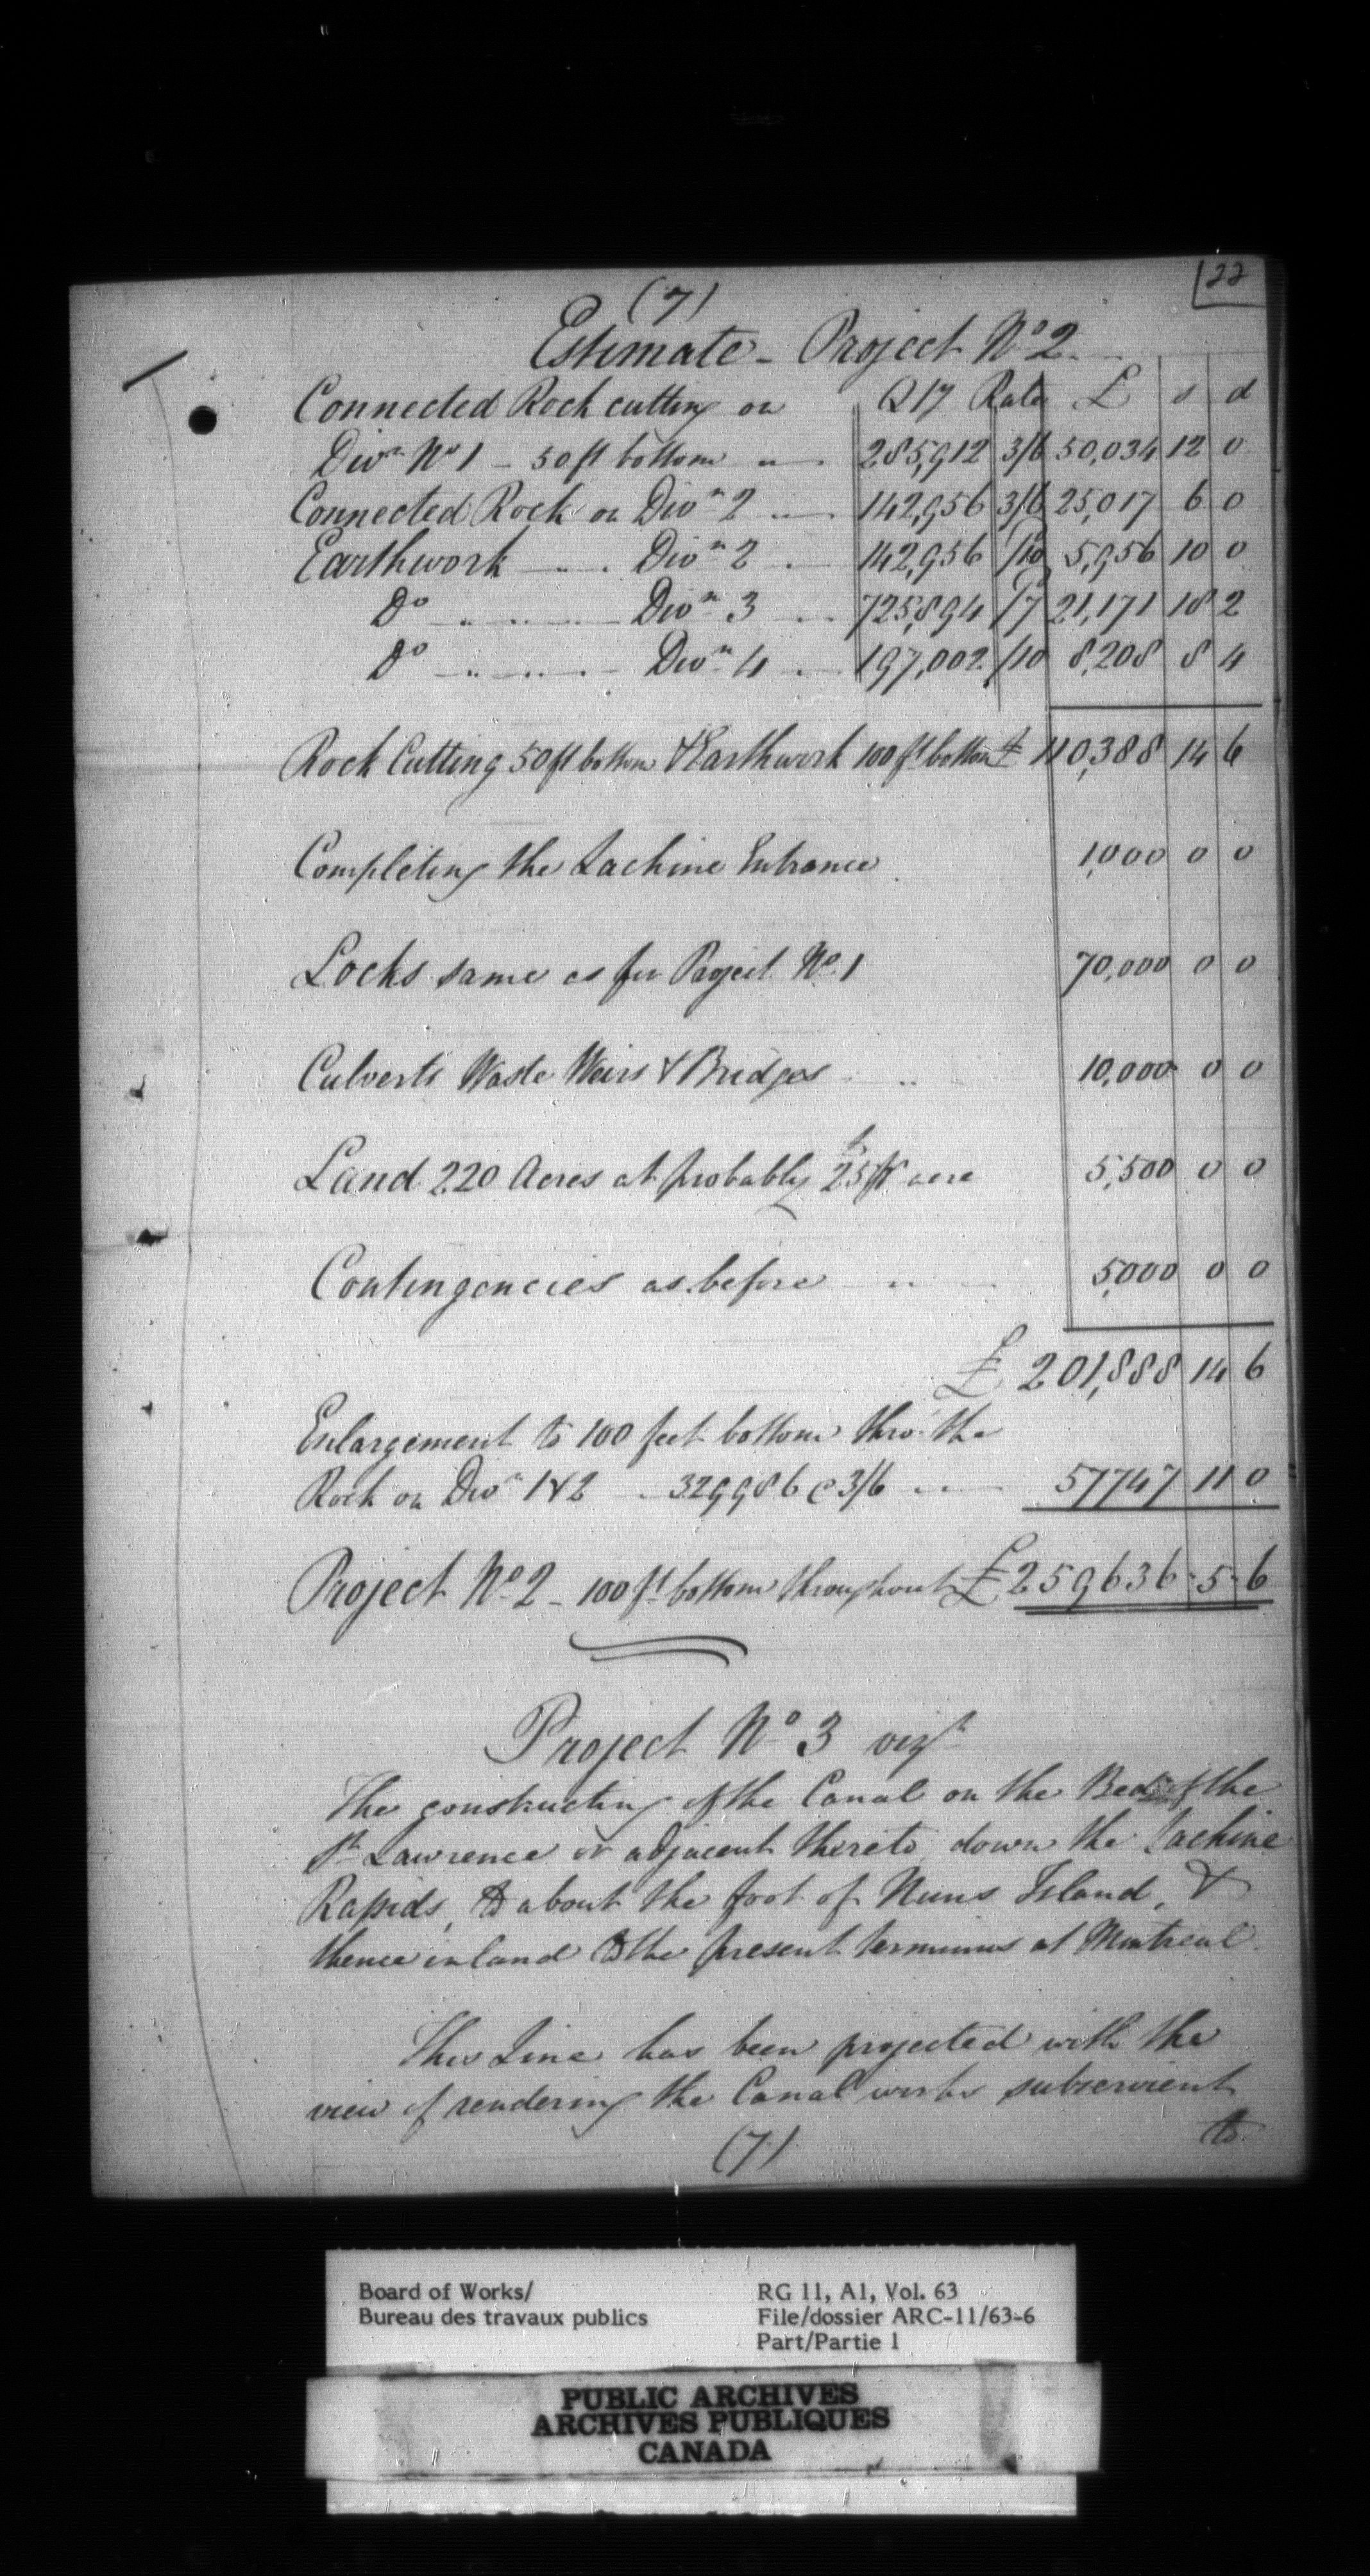 22
(7)
Estimate - Project No 2
Connected Rock cutting on Qty Rate £ s d
Divn No 1 - 50 ft bottom 285,912 3/6 50,034 12 0
Connected Rock on Divn 2 142,956 3/6 25,017 6 0
Earthwork Divn 2 142,956 /10 5,956 10 0
Do Divn 3 725,894 /7 21,171 18 2
Do Divn 4 197,002 /10 8,208 8 4
Rock Cutting 50 ft bottom & Earthwork 100 ft bottom £ 110,388 14 6
Completing the Lachine Entrance 1,000 0 0
Locks same as for Project No 1 70,000 0 0
Culverts Waste Weirs & Bridges 10,000 0 0
Land 220 Acres at probably £25 pr acre 5,500 0 0
Contingencies as before 5,000 0 0
£ 201,888 14 6
Enlargement to 100 feet bottom thro' the
Rock on Divn 1 & 2 - 329986 @ 3/6 57747 11 0
Project No 2 - 100 ft bottom throughout £ 259636 - 5 - 6
Project No 3 vizt
The constructing of the Canal on the Bed of the
St Lawrence or adjacent thereto, down the Lachine
Rapids, to about the foot of Nuns Island, &
thence inland to the present terminus at Montreal.
This Line has been projected with the
view of rendering the Canal works subservient
to
(7)
Board of Works/
Bureau des travaux publics
RG 11, A1, Vol. 63
File/dossier ARC-11/63-6
Part/Partie 1
PUBLIC ARCHIVES
ARCHIVES PUBLIQUES
CANADA